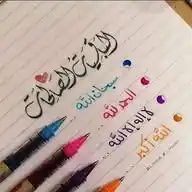 الباقيات الصالحات
سبحان الله
الحمد لله
لا إله إلا الله
الله أكبر